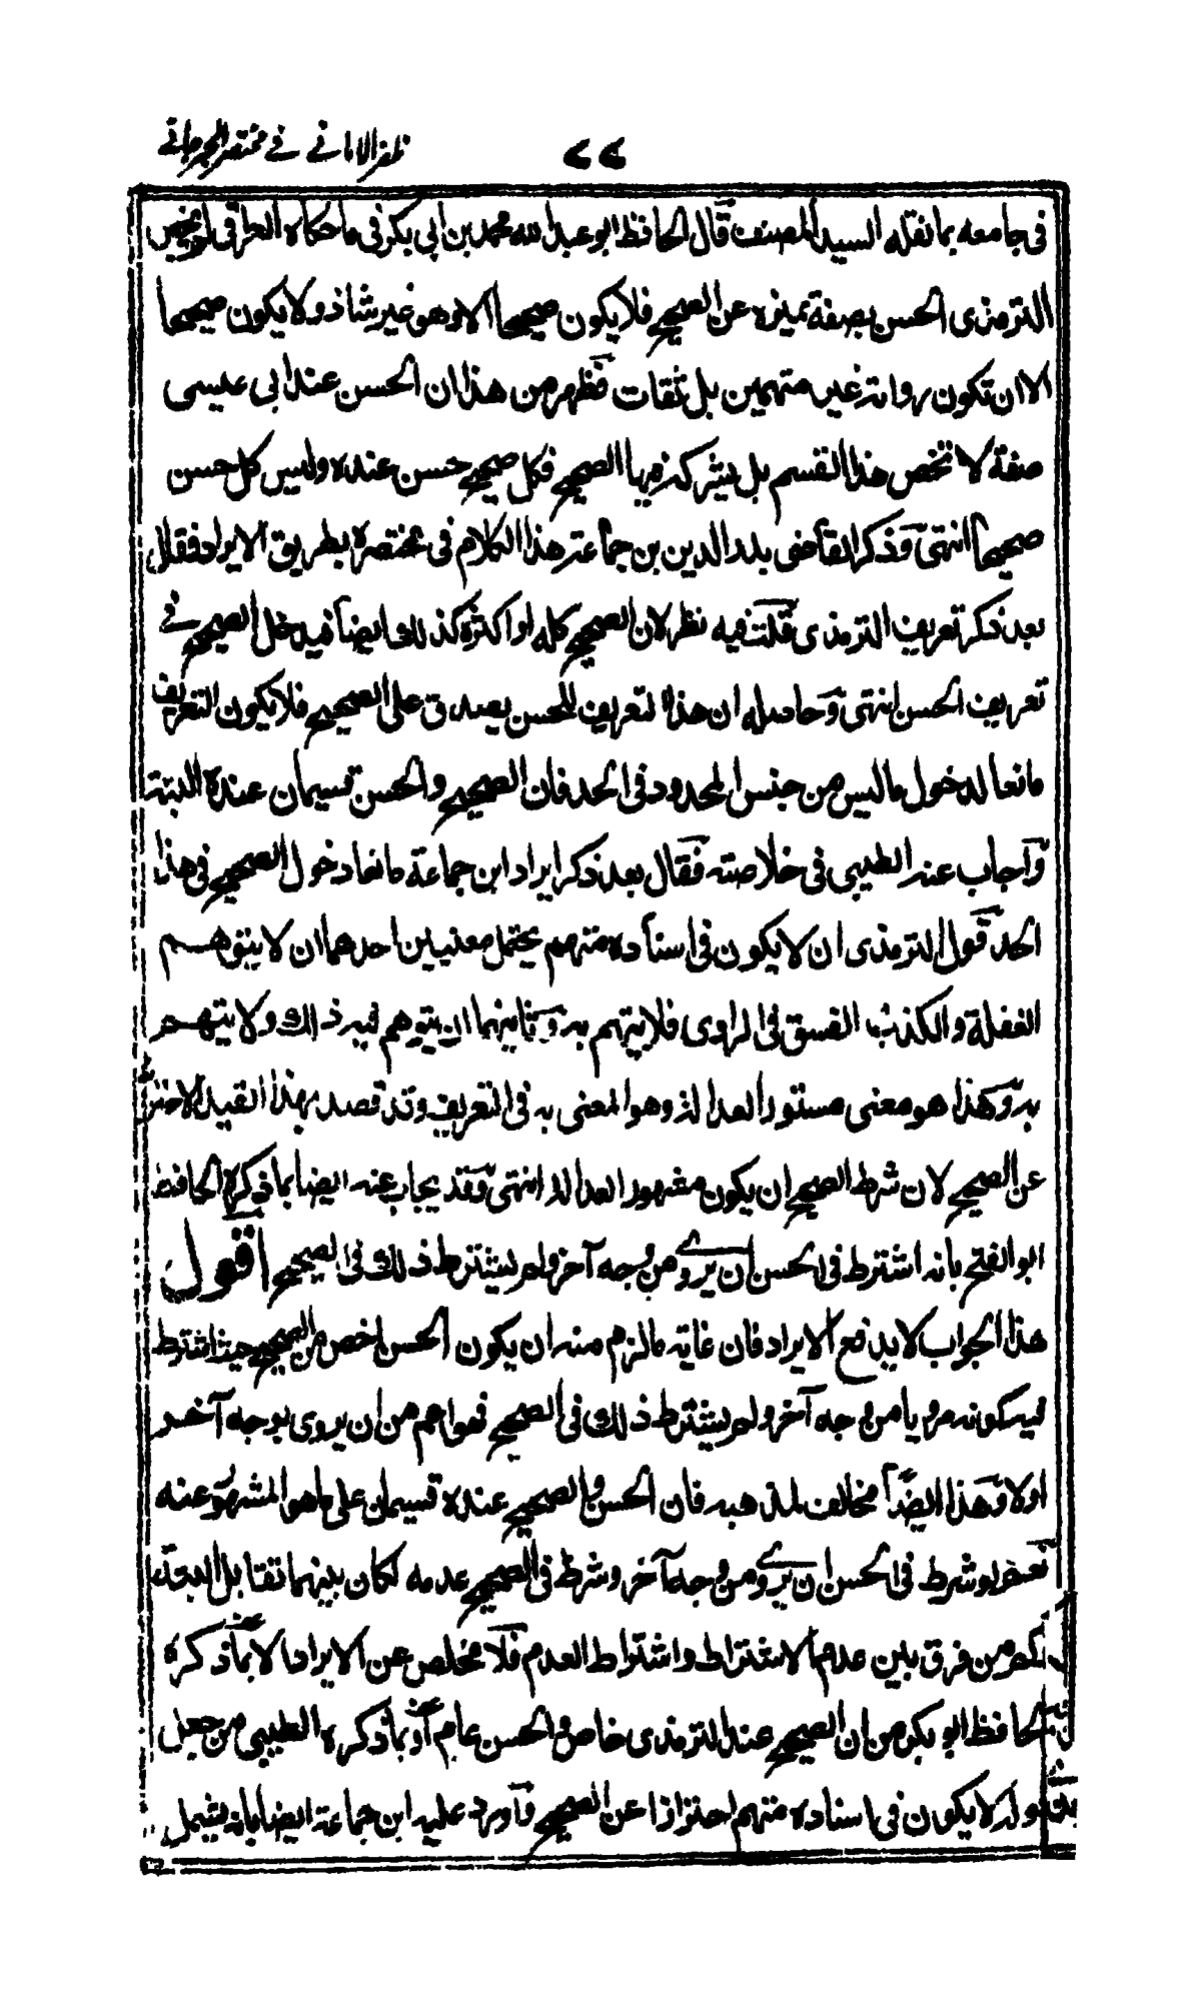 ظفر الامانے فے مختصر الجرجانے
٧٧
فی جامعه بما نقله السید المصنف قال الحافظ ابو عبد الله محمد بن ابی بکر فی ما حکاه العراقی لم یخص
الترمذی الحسن بصفة تمیزه عن الصحیح فلا یکون صحیحا الا وهو غیر شاذ ولا یکون صحیحا
الا ان تکون رواته غیر متهمین بل ثقات فظهر من هذا ان الحسن عند ابی عیسی
صفة لا تخص هذا القسم بل یشرکه فیها الصحیح فکل صحیح حسن عنده ولیس کل حسن
صحیحا انتهی وذکر القاضی بدر الدین بن جماعة هذا الکلام فی مختصره بطریق الایراد فقال
بعد ذکر تعریف الترمذی قلت فیه نظر لان الصحیح کله او اکثره کذلك ایضا فیدخل الصحیح فے
تعریف الحسن انتهی وحاصله ان هذا التعریف للحسن یصدق علی الصحیح فلا یکون التعریف
مانعا لدخول ما لیس من جنس المحدود فی الحد فان الصحیح والحسن قسیمان عنده البتة
واجاب عنه الطیبی فی خلاصته فقال بعد ذکر ایراد ابن جماعة مانعا دخول الصحیح فی هذا
الحد قول الترمذی ان لا یکون فی اسناده متهم یحتمل معنیین احدهما ان لا یتوهم
الغفلة والکذب الفسق فی الراوی فلا یتهم به وثانیهما ان یتوهم فیه ذالك ولا یتهم
به وهذا هو معنی مستور العدالة وهو المعنی به فی التعریف وقد قصد بهذا القید الاحتراز
عن الصحیح لان شرط الصحیح ان یکون مشهور العدالة انتهی وقد یجاب عنه ایضا بما ذکره الحافظ
ابو الفتح بانه اشترط فی الحسن ان یروے من وجه آخر ولم یشترط ذلك فی الصحیح اقول
هذا الجواب لا یدفع الایراد فان غایة ما لزم منه ان یکون الحسن اخص من الصحیح حیث اشترط
فیه کونه مرویا من وجه آخر ولم یشترط ذلك فی الصحیح فهو اعم من ان یروی بوجه آخر
اولا وهذا ایضا مخالف لمذهبه فان الحسن والصحیح عنده قسیمان علی ما هو المشهور عنه
نعم لو شرط فی الحسن ان یروے من وجه آخر وشرط فی الصحیح عدمه لکان بینهما تقابل البتة
کم من فرق بین عدم الاشتراط واشتراط العدم فلا مخلص عن الایراد الا بما ذکره
الحافظ ابو بکر من ان الصحیح عند الترمذی خاص والحسن عام او بما ذکره الطیبی من جعل
قوله لا یکون فی اسناده متهم احترازا عن الصحیح واورد علیه ابن جماعة ایضا بانه یشمل